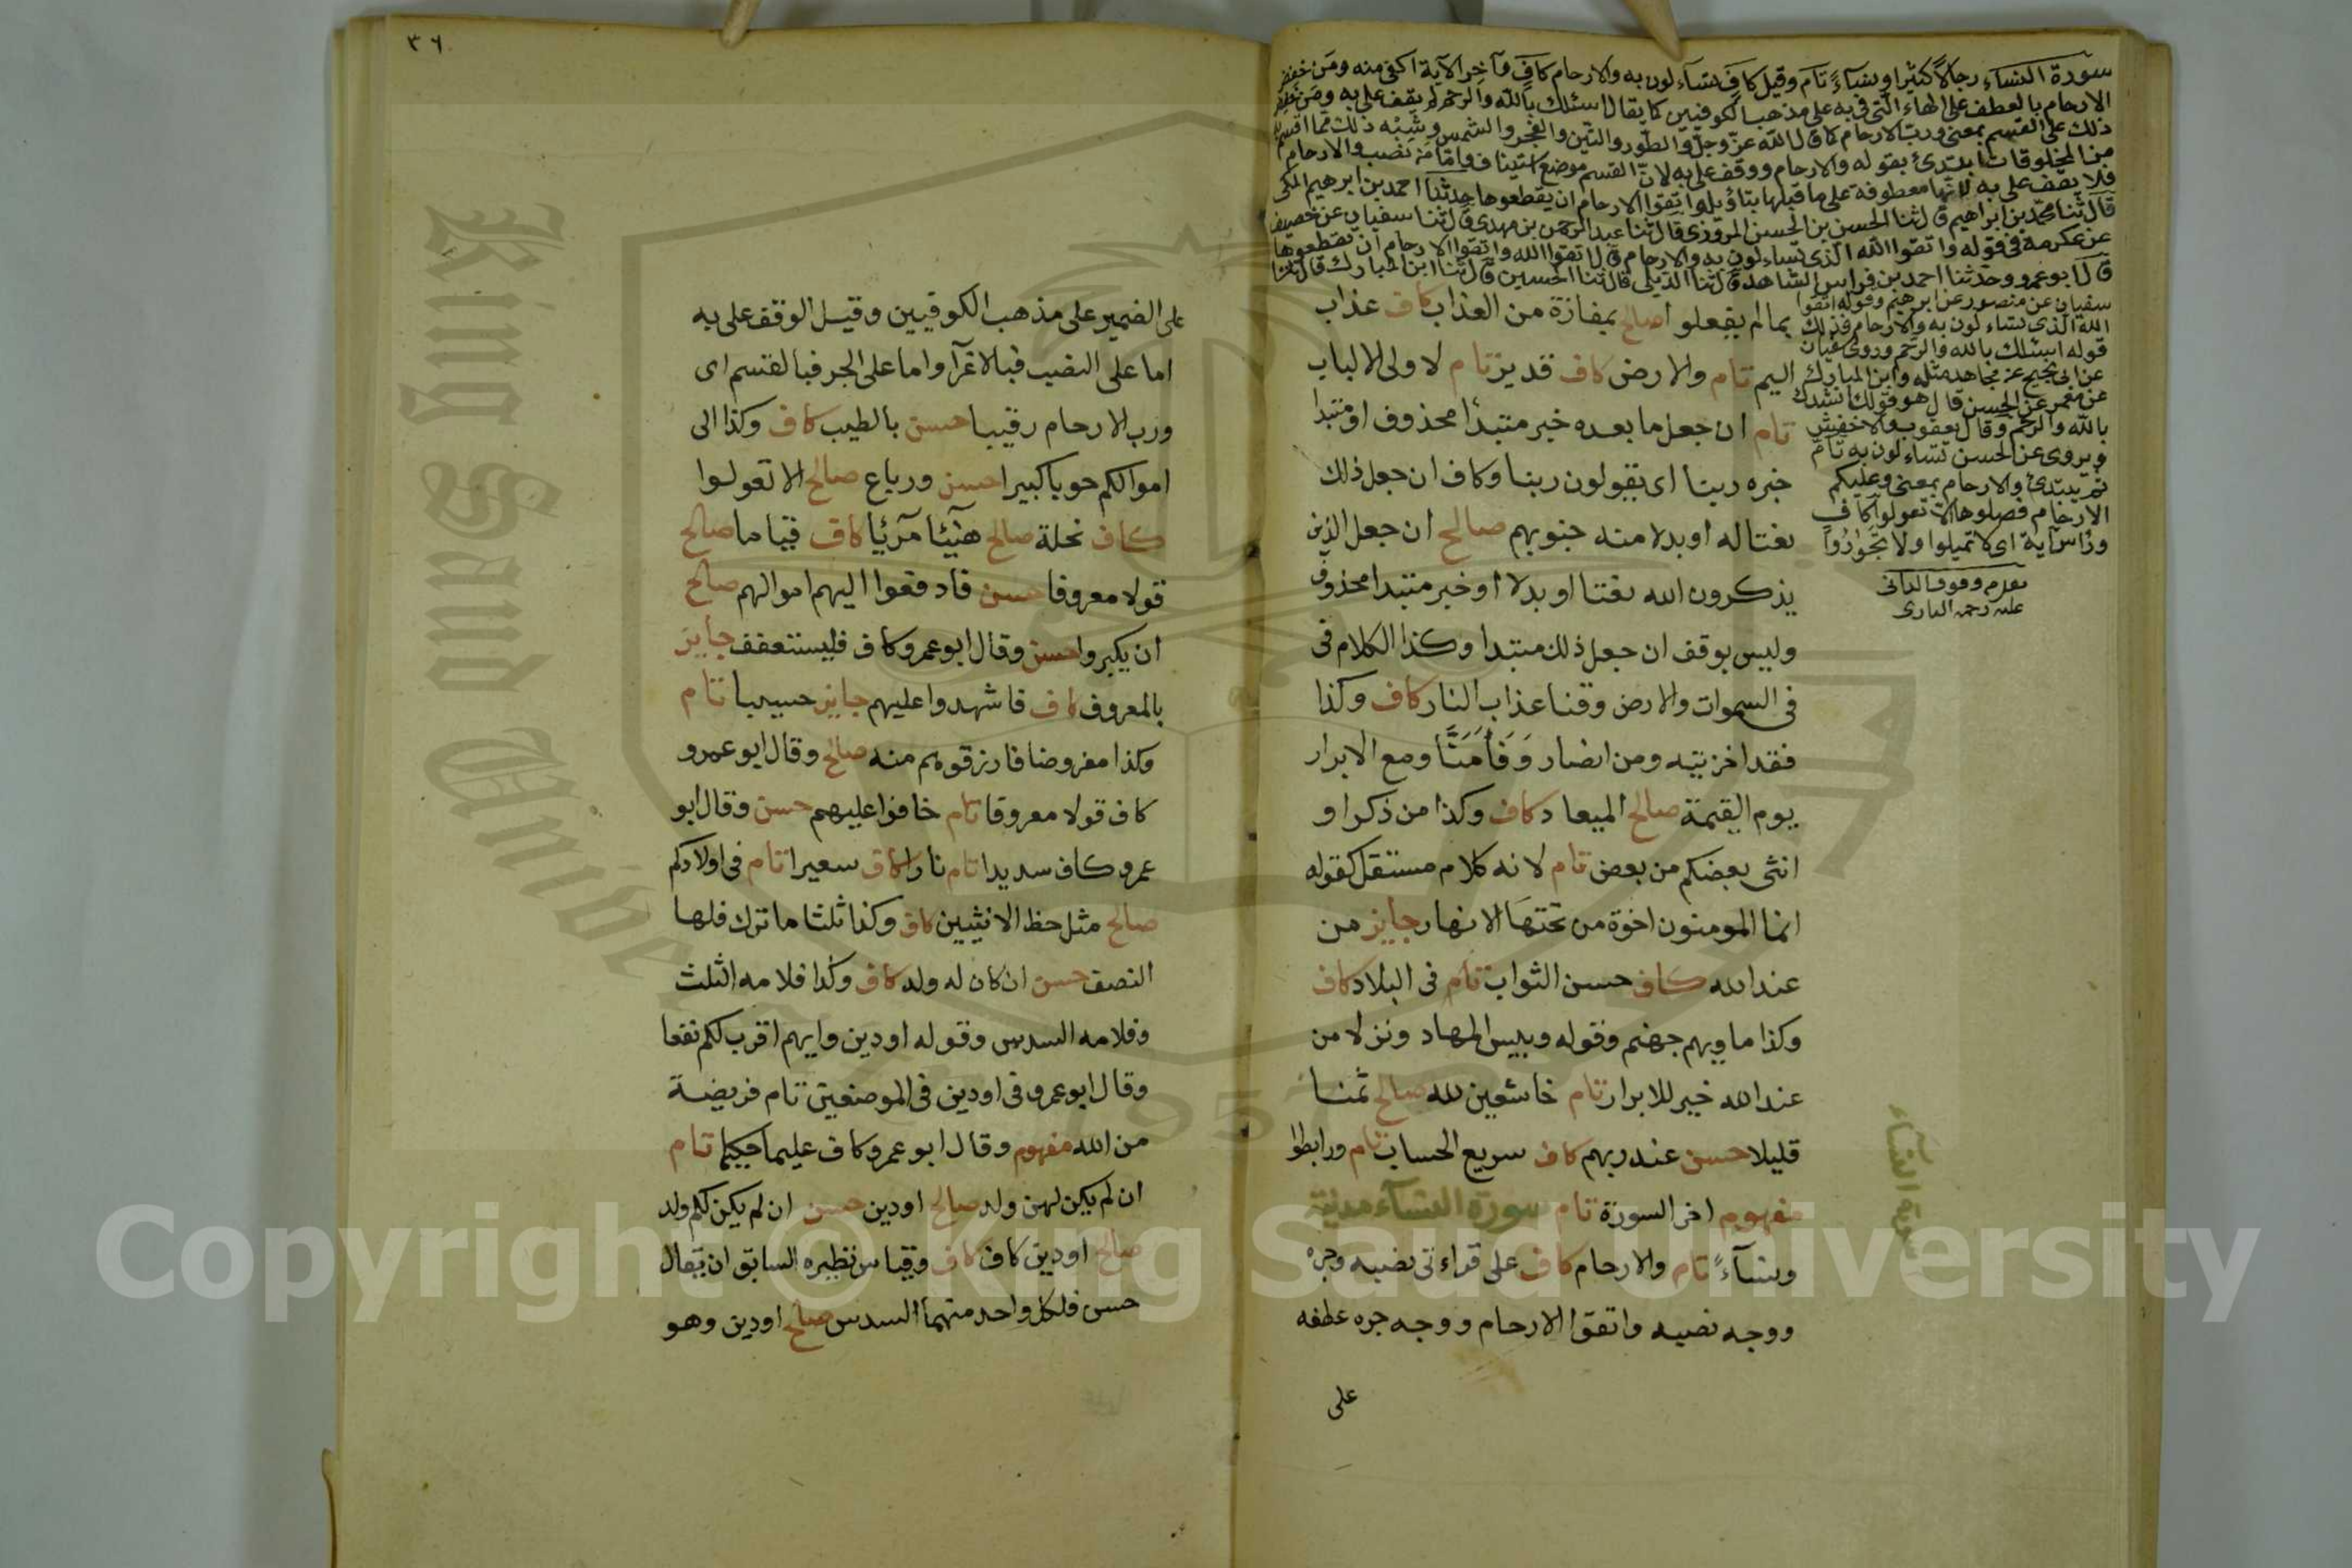 سورة النساء رجالا كثيرا ونساءً تام وقيل كاف تساءلون به والارحام كافٍ وآخر الآية اكفى منه ومَن خفض
الارحام بالعطف على الهاء التى فى به على مذهب الكوفيين كما يقال اسئلك بالله والرحم لم يقف على به ومن خفض
ذلك على القسم بمعنى وربّ الارحام كما قال الله عزّ وجلّ والطّور والتّين والفجر والشمس وشبْه ذلك ممّا اقسم به
من المخلوقات ابتدئ بقوله والارحام ووقف على به لانّ القسم موضع استيناف وامّا مَن نصب والارحام
فلا يقف على به لانّها معطوفة على ما قبلها بتاؤيل واتقوا الارحام ان يقطعوها حدثنا احمد بن ابرهيم المكى
قال ثنا محمد بن ابراهيم قال ثنا الحسن بن الحسن المروزى قال ثنا عبد الرحمن بن مهدى قال ثنا سفيان عن خصيف
عن عكرمة فى قوله واتقوا الله الذى تساءلون به والارحام قال اتقوا الله واتقوا الارحام ان تقطعوها
قال ابو عمرو وحدثنا احمد بن فراس الشاهد قال ثنا الديلى قال ثنا الحسين قال ثنا ابن المبارك قال ثنا
سفيان عن منصور عن ابرهيم وقوله اتقوا
الله الذى تساءلون به والارحام فذلك
قوله اسئلك بالله والرّحم وروى سفيان
عن ابى نجيح عن مجاهد مثله وابن المبارك
عن معمر عن الحسن قال هو قولك انشدك
بالله والرّحم وقال يعقوب والاخفش
ويروى عن الحسن تساءلون به تامّ
ثم يبتدئ والارحام بمعنى وعليكم
الارحام فصلوها الّا تعولوا كافٍ
وراس آية اى لا تميلوا ولا تجوروا
وقوف الدانى
عليه رحمة البارى
بما لم يفعلوا صالح بمفازة من العذاب كاف عذاب
اليم تام والارض كاف قدير تام لاولى الالباب
تام ان جعل ما بعده خبر مبتدأ محذوف او مبتدا
خبره ربنا اى يقولون ربنا وكاف ان جعل ذلك
نعتا له او بدلا منه جنوبهم صالح ان جعل الذين
يذكرون الله نعتا او بدلا او خبر مبتدا محذوف
وليس بوقف ان جعل ذلك مبتدا وكذا الكلام فى
فى السموات والارض وقنا عذاب النار كاف وكذا
فقد اخزيته ومن انصار وَفَآمَنَّا ومع الابرار
يوم القيمة صالح الميعاد كاف وكذا من ذكر او
انثى بعضكم من بعض تام لانه كلام مستقل كقوله
انما المومنون اخوة من تحتها الانهار جايز من
عند الله كاف حسن الثواب تام فى البلاد كاف
وكذا ماويهم جهنم وقوله وبيس المهاد ونزلا من
عند الله خير للابرار تام خاشعين لله صالح ثمنا
قليلا حسن عند ربهم كاف سريع الحساب تام ورابطوا
مفهوم اخر السورة تام سورة النسآء مدنية
ونسآءً تام والارحام كاف على قراءتى نصبه وجره
ووجه نصبه واتقوا الارحام ووجه جره عطفه
على
سورة النسآء
٣٦
على الضمير على مذهب الكوفيين وقيل الوقف على به
اما على النصب فبالاغرآ واما على الجر فبالقسم اى
ورب الارحام رقيبا حسن بالطيب كاف وكذا الى
اموالكم حوبا كبيرا حسن ورباع صالح الا تعولوا
كاف نحلة صالح هنيئا مريئا كاف قياما صالح
قولا معروفا حسن فادفعوا اليهم اموالهم صالح
ان يكبروا حسن وقال ابو عمرو كاف فليستعفف جايز
بالمعروف كاف فاشهدوا عليهم جايز حسيبا تام
وكذا مفروضا فارزقوهم منه صالح وقال ابو عمرو
كاف قولا معروفا تام خافوا عليهم حسن وقال ابو
عمرو كاف سديدا تام نارا كاف سعيرا تام فى اولادكم
صالح مثل حظ الانثيين كاف وكذا ثلثا ما ترك فلها
النصف حسن ان كان له ولد كاف وكذا فلامه الثلث
وفلامه السدس وقوله او دين وايهم اقرب لكم نفعا
وقال ابو عمرو فى او دين فى الموضعين تام فريضة
من الله مفهوم وقال ابو عمرو كاف عليما حكيما تام
ان لم يكن لهن ولد صالح او دين حسن ان لم يكن لكم ولد
صالح او دين كاف كاف وقياس نظيره السابق ان يقال
حسن فلكل واحد منهما السدس صالح او دين وهو
King Saud University
1957
Copyright © King Saud University